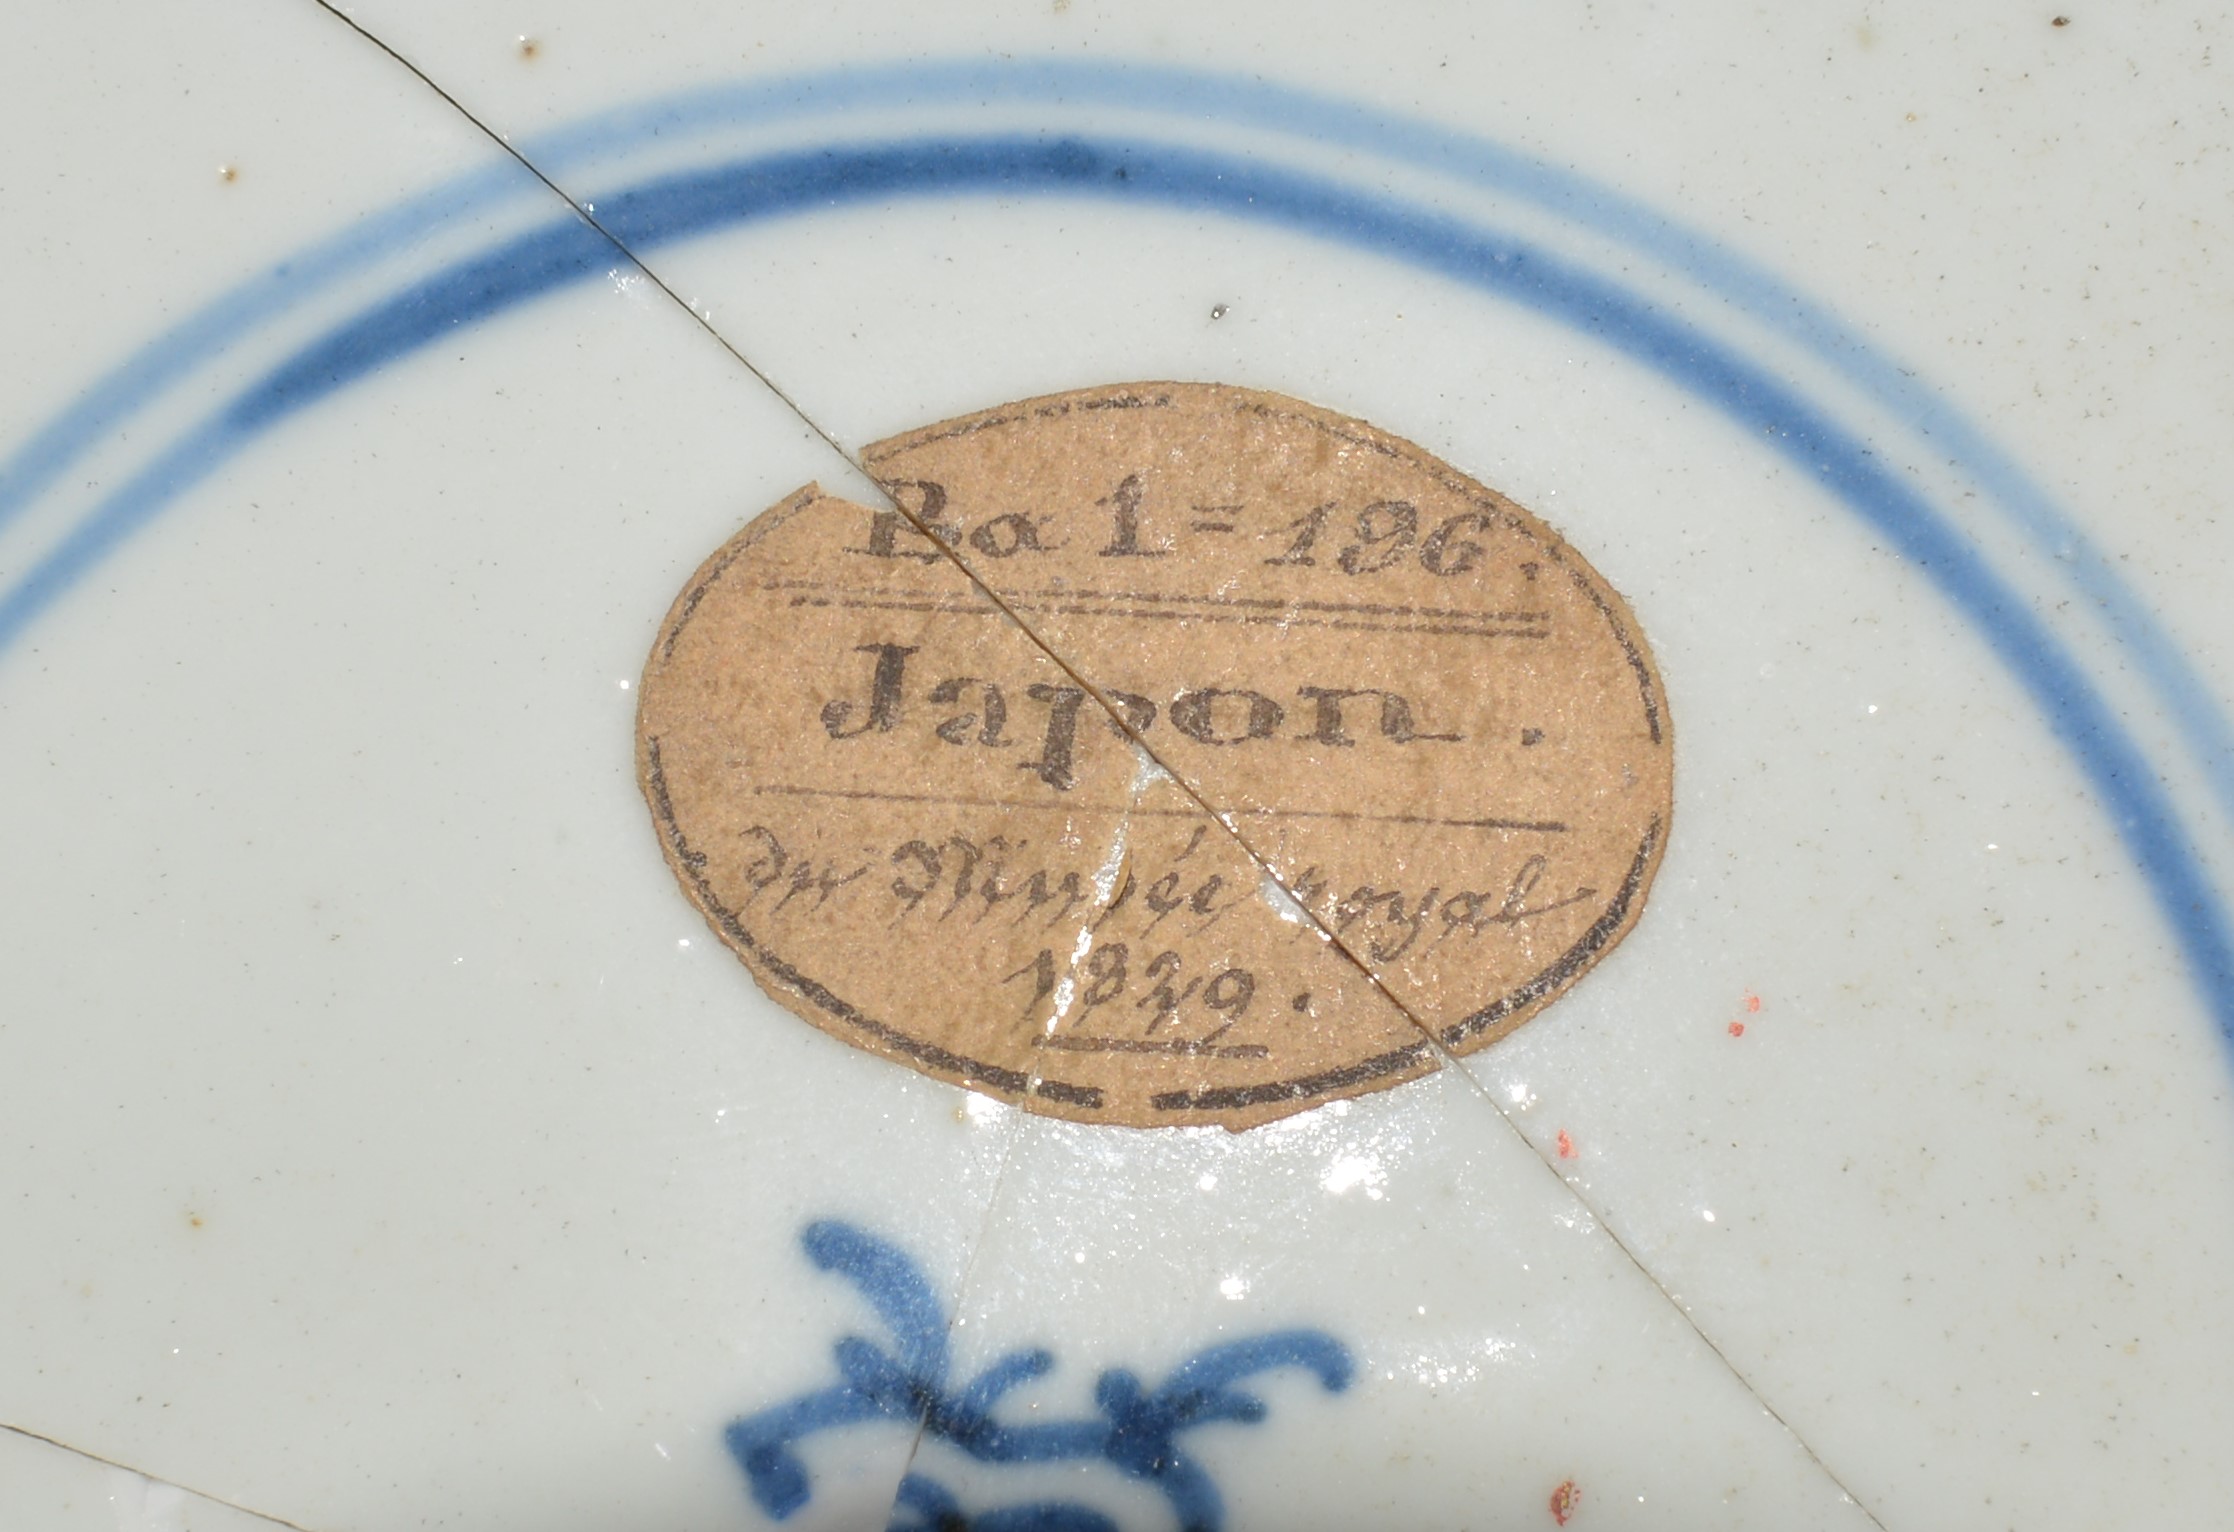 Ba 1 = 196.
Japon.
du Musée royal
1829.